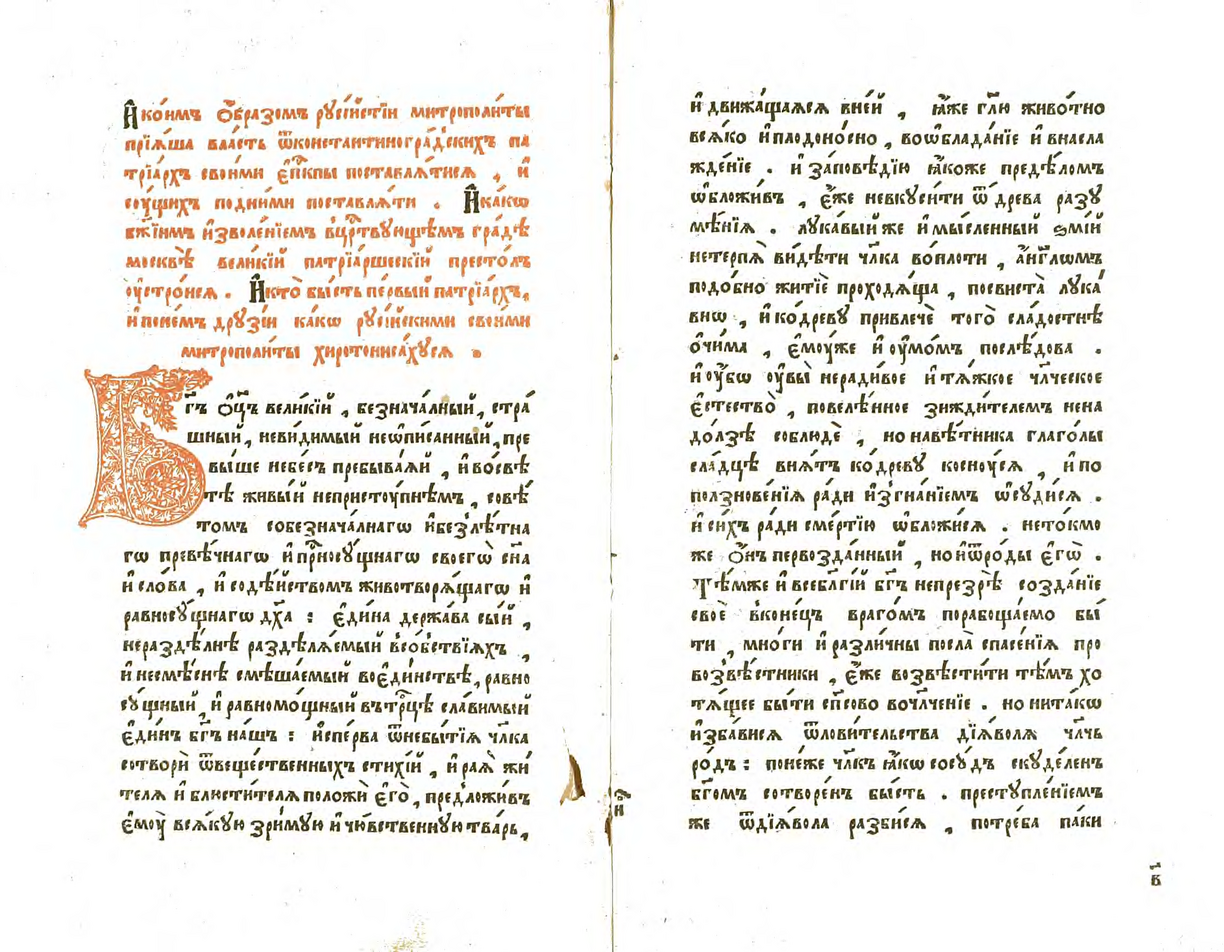 И҆ко́имъ ѻ҆́бразомъ рꙋсі́йстїи митрополи́ты
прїѧ́ша вла́сть ѿконстантиногра́дскихъ па
трїа́рхъ свои́ми є҆пⷭ҇кпы поставлѧ́тисѧ , и҆
сꙋ́щихъ подни́ми поставлѧ́ти . И҆ка́кѡ
бж҃їимъ и҆зволе́нїемъ вцрⷭ҇твꙋющемъ гра́дѣ
москвѣ̀ вели́кїй патрїа́ршескїй престо́лъ
ᲂу҆стро́исѧ . И҆кто̀ бы́сть пе́рвый патрїа́рхъ,
и҆поне́мъ дрꙋзі́и ка́кѡ рꙋсі́йскими свои́ми
митрополи́ты хиротониса́хꙋсѧ
Бг҃ъ ѻ҆ц҃ъ вели́кїй , безнача́лный , стра́
шный , неви́димый неѡпи́санный , пре
вы́ше небе́съ пребыва́ѧй , и҆во́свѣ
тѣ живы́й непристꙋ́пнѣмъ , совѣ́
томъ собезнача́лнагѡ и҆безлѣ́тна
гѡ превѣ́чнагѡ и҆прⷭ҇носꙋ́щнагѡ своегѡ̀ сн҃а
и҆ сло́ва , и҆ содѣ́йствомъ животворѧ́щагѡ и҆
равносꙋ́щнагѡ дх҃а : є҆ди́на держа́ва сы́й ,
нераздѣ́лнѣ раздѣлѧ́емый всо́бствїѧхъ ,
и҆ несмѣ́снѣ смѣша́емый воє҆ди́нствѣ , равно
сꙋ́щный , и҆ равномо́щный вътрⷪ҇цѣ сла́вимый
є҆ди́нъ бг҃ъ на́шъ : и҆спе́рва ѿнебытїѧ̀ чл҃ка
сотворѝ ѿвеще́ственныхъ стихі́й , и҆ раѧ̀ жи́
телѧ и҆ блюсти́телѧ положѝ є҆го̀ , предложи́въ
є҆мꙋ̀ всѧ́кꙋю зри́мꙋю и҆ чю́вственнꙋю тва́рь ,
и҆ дви́жащаѧсѧ вне́й , ꙗ҆́же гл҃ю живо́тно
всѧ́ко и҆плодоно́сно , воѡблада́нїе и҆ внасла
жде́нїе . и҆ за́повѣдїю ꙗ҆́коже предѣ́ломъ
ѡ҆бложи́въ , є҆́же невкꙋси́ти ѿ дре́ва разꙋ
мѣ́нїѧ . лꙋка́вый же и҆ мы́сленный ѕмі́й
нетерпѧ̀ ви́дѣти чл҃ка во́плоти , а҆́гг҃лѡмъ
подо́бно житїѐ проходѧ́ща , посвиста̀ лꙋка́
внѡ , и҆ ко́древꙋ привлечѐ того̀ сла́достнѣ
ѻ҆чи́ма , є҆мꙋ́же и҆ ᲂу҆мо́мъ послѣ́дова .
и҆ ᲂу҆́бѡ ᲂу҆вы̀ неради́вое и҆ тѧ́жкое чл҃ческое
є҆стество̀ , повелѣ́нное зижди́телемъ нена
до́лзѣ соблюдѐ , но навѣ́тника глаго́лы
сла́дцѣ внѧ́тъ ко́древꙋ коснꙋ́сѧ , и҆ по
ползнове́нїѧ ра́ди и҆згна́нїемъ ѡ҆сꙋди́сѧ .
и҆ си́хъ ра́ди сме́ртїю ѡ҆бложи́сѧ . нето́кмо
же ѻ҆́нъ первозда́нный , но и҆ѿро́ды є҆гѡ̀ .
Тѣ́мже и҆ всебл҃гі́й бг҃ъ непрезрѣ̀ созда́нїе
своѐ вконе́цъ враго́мъ порабоща́емо бы́
ти , мно́ги и҆ разли́чны посла̀ спасе́нїѧ про
возвѣ́стники , є҆́же возвѣсти́ти тѣ́мъ хо
тѧ́щее бы́ти сп҃сово вочл҃че́нїе . но нита́кѡ
и҆зба́висѧ ѿлови́тельства дїѧ́волѧ чл҃чь
ро́дъ : поне́же чл҃къ ꙗ҆́кѡ сосꙋ́дъ скꙋде́ленъ
бг҃омъ сотворе́нъ бы́сть . престꙋпле́нїемъ
же ѿдїѧ́вола разби́сѧ , потре́ба па́ки
в҃